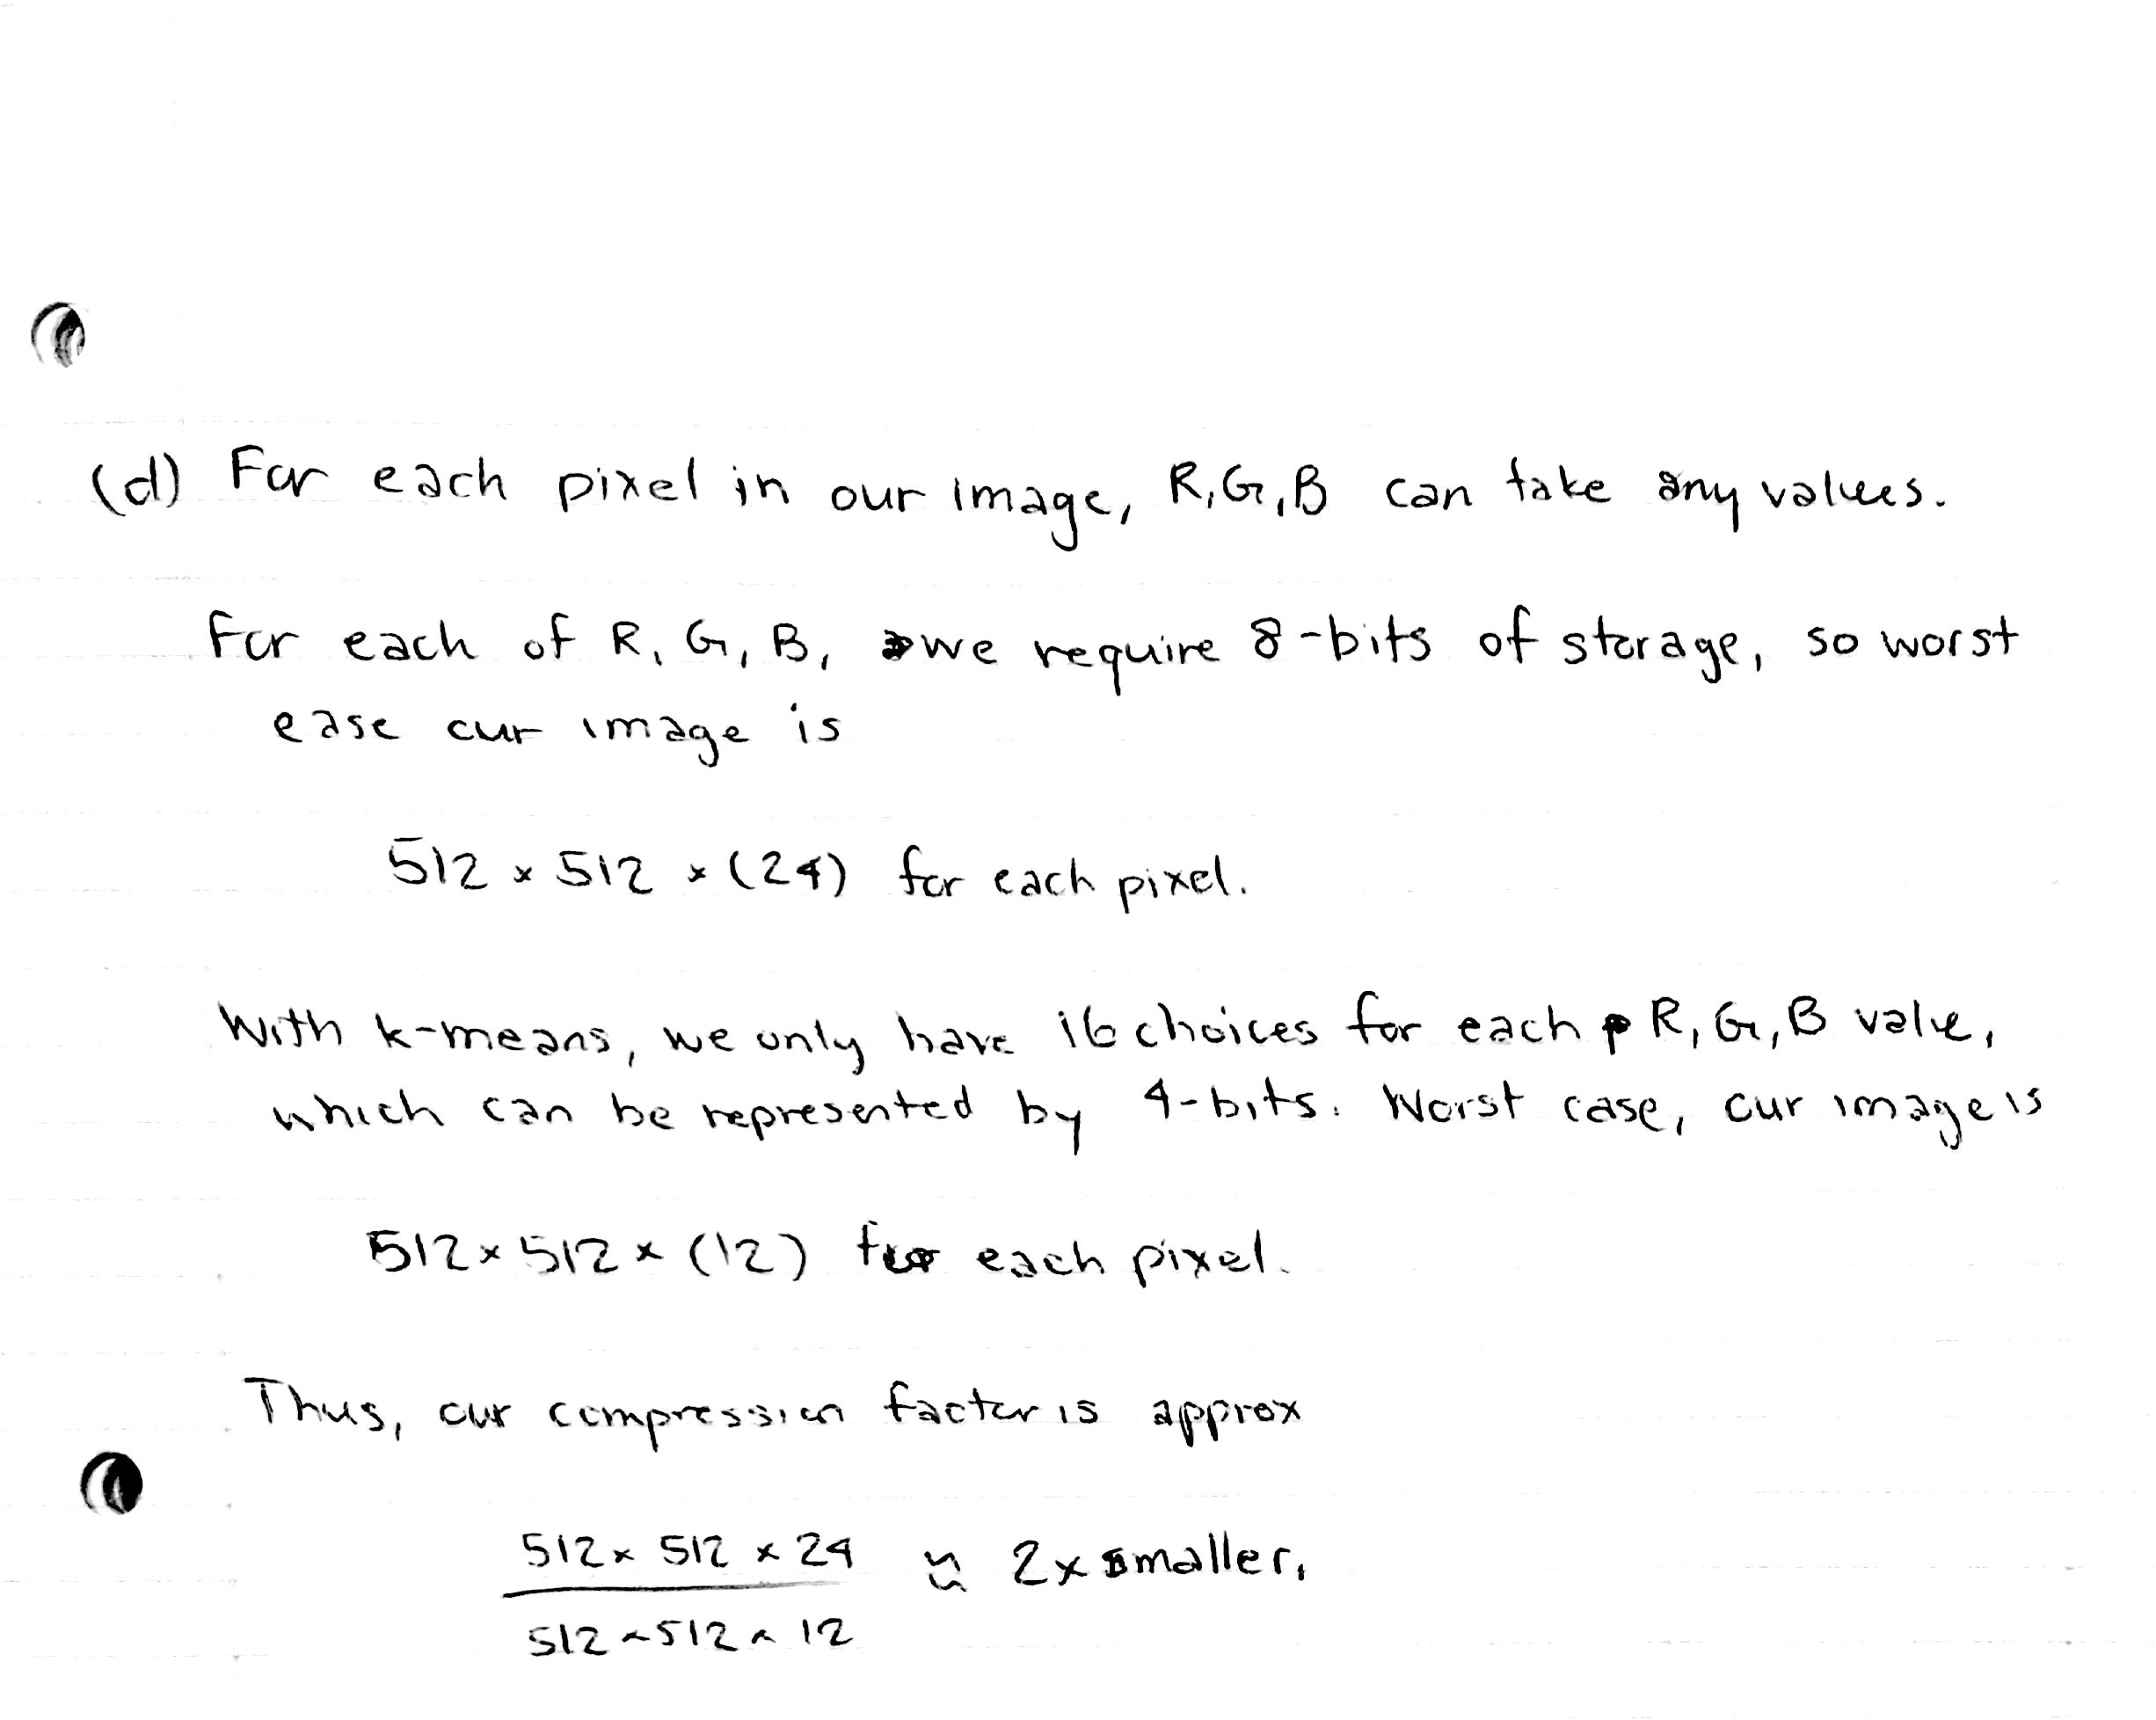 (d) For each pixel in our image, R,G,B can take any values.
For each of R, G, B, we require 8-bits of storage, so worst
case our image is
512 x 512 x (24) for each pixel.
With k-means, we only have 16 choices for each R, G, B value,
which can be represented by 4-bits. Worst case, our image is
512 x 512 x (12) for each pixel.
Thus, our compression factor is approx
512 x 512 x 24 ≈ 2x smaller.
512 x 512 x 12